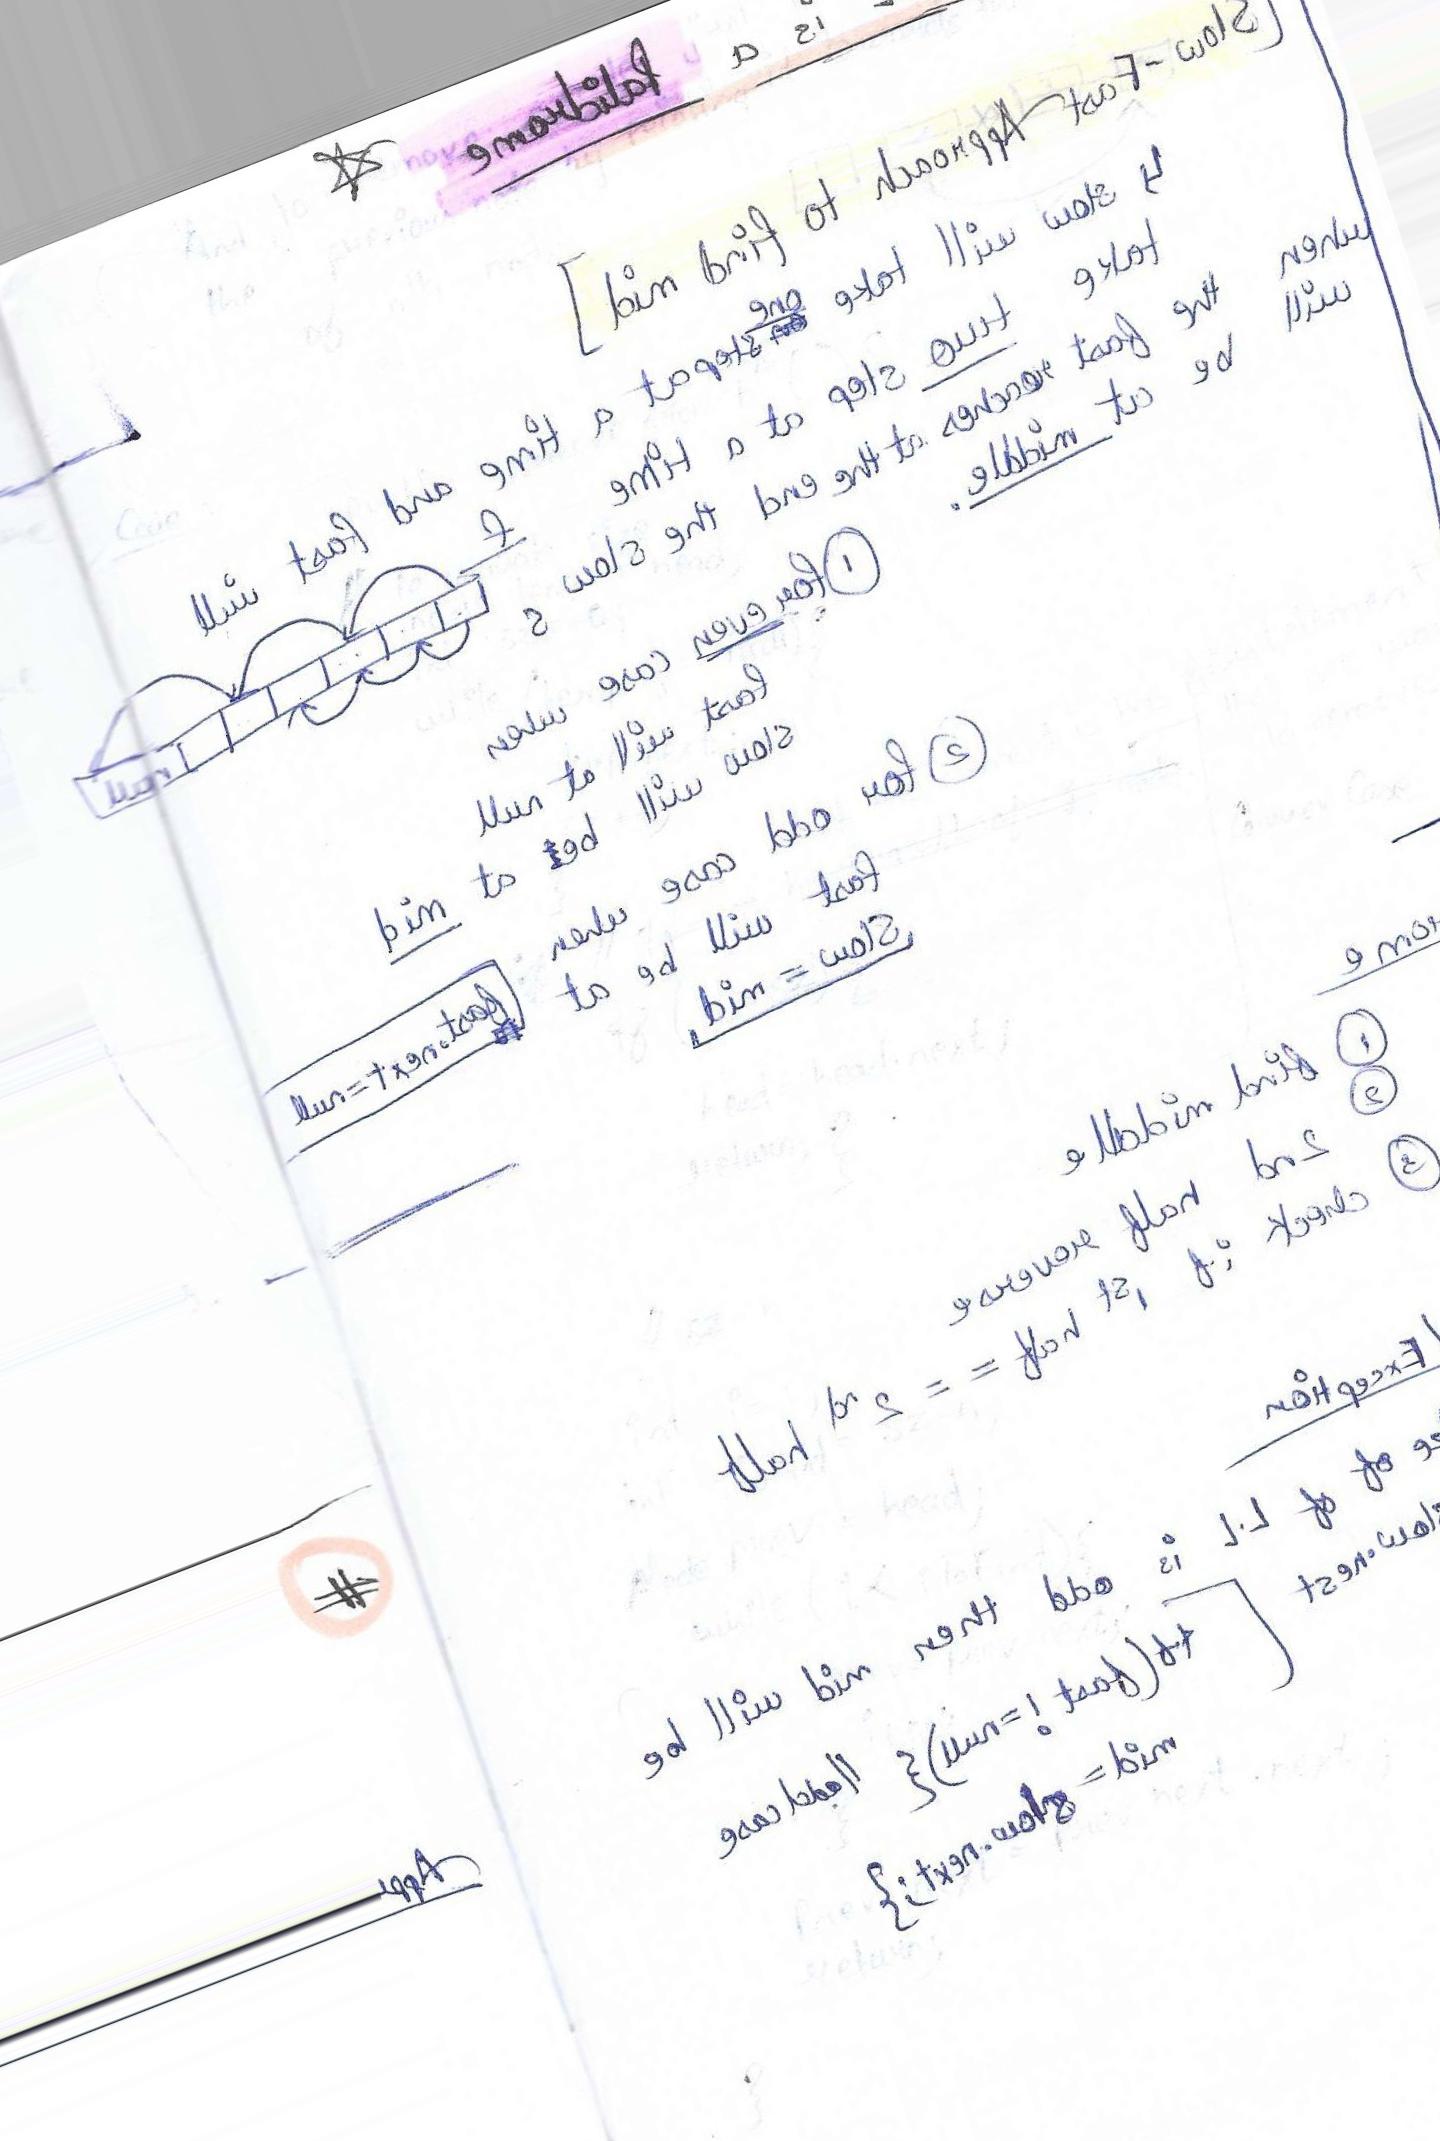 is a Palidrome
[Slow-Fast Approach to find mid]
↳ slow will take one step at a time and fast will
take two step at a time
when the fast reaches at the end the slow
will be at middle.
① for even case when
fast will at null
slow will be at mid
f
s
null
② for odd case when
fast will be at fast.next=null
slow = mid
① find middle
② 2nd half reverse
③ check if 1st half == 2nd half
Exception
of L.L is odd then mid will be
slow.next
(fast != null){ //odd case
mid = slow.next;}
#
Appr